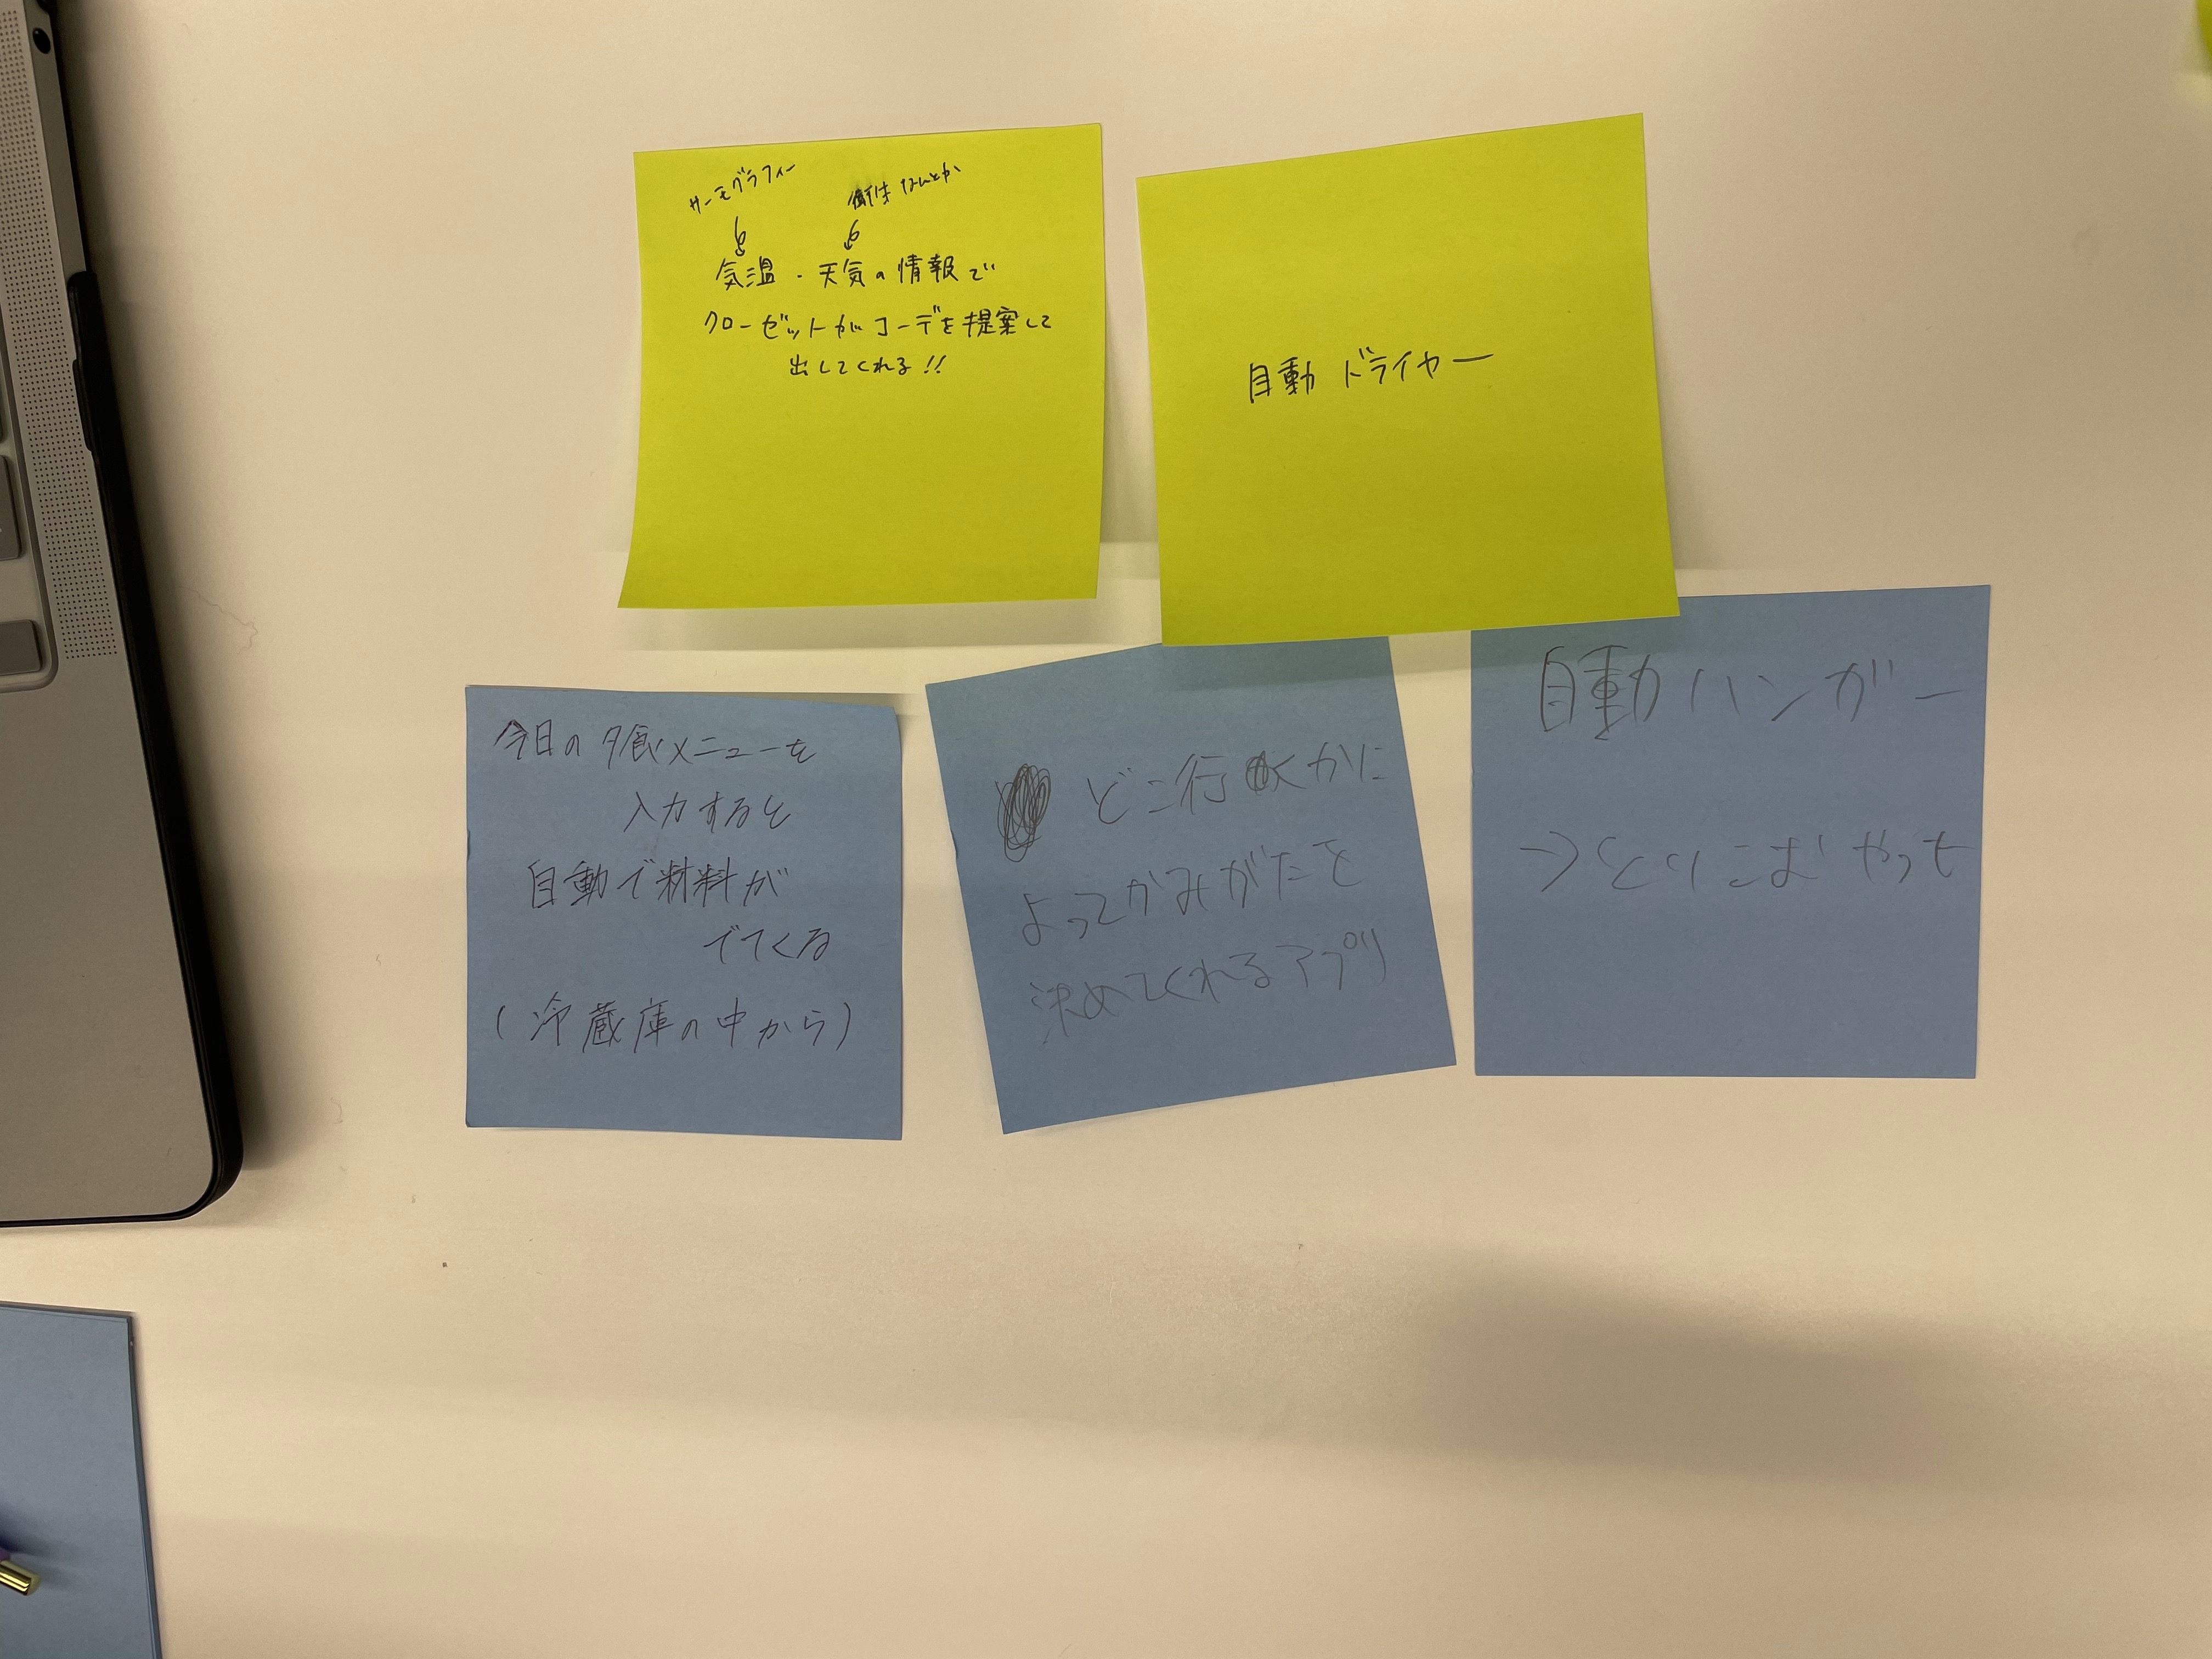 サーモグラフィー
衛星なんとか
気温・天気の情報で
クローゼットがコーデを提案して
出してくれる!!
自動ドライヤー
今日の夕食メニューを
入力すると
自動で材料が
でてくる
(冷蔵庫の中から)
どこ行くかに
よってかみがたを
決めてくれるアプリ
自動ハンガー
→とりこむやつも